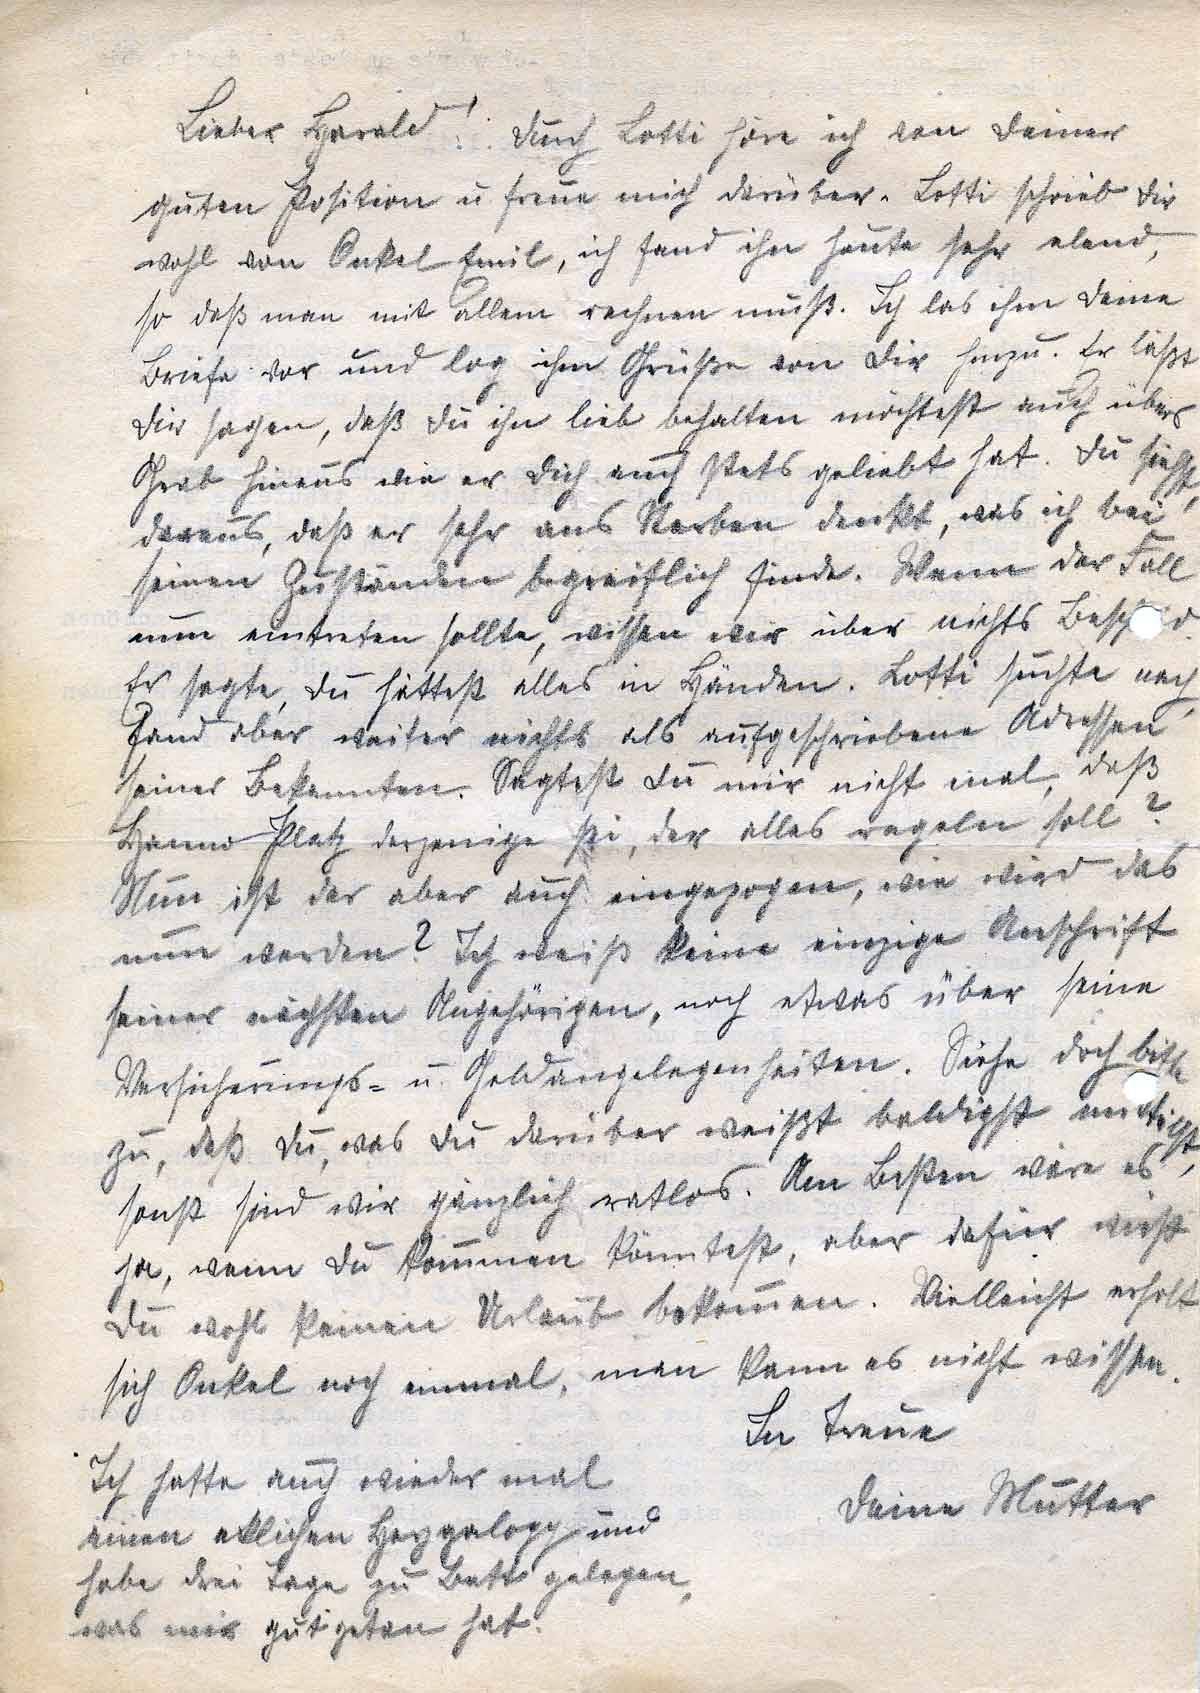 Lieber Harald! Durch Lotti höre ich von Deiner
guten Position u freue mich darüber. Lotti schrieb Dir
wohl von Onkel Emil, ich fand ihn heute sehr elend,
so daß man mit allem rechnen muß. Ich las ihm Deine
Briefe vor und log ihm Grüße von Dir hinzu. Er läßt
Dir sagen, daß Du ihn lieb behalten möchtest auch übers
Grab hinaus wie er Dich auch stets geliebt hat. Du siehst
daraus, daß er sehr ans Sterben denkt, was ich bei
seinen Zuständen begreiflich finde. Wenn der Fall
nun eintreten sollte, wissen wir über nichts Bescheid.
Er sagte, Du hättest alles in Händen. Lotti suchte nach,
fand aber weiter nichts als aufgeschriebene Adressen
seiner Bekannten. Sagtest Du mir nicht mal, daß
Hanno Platz derjenige sei, der alles regeln soll?
Nun ist der aber auch eingezogen, wie wird das
nun werden? Ich weiß keine einzige Anschrift
seiner nächsten Angehörigen, noch etwas über seine
Versicherungs= u. Geldangelegenheiten. Siehe doch bitte
zu, daß Du, was Du darüber weißt baldigst mitteilst,
sonst sind wir gänzlich ratlos. Am Besten wäre es
ja, wenn Du kommen könntest, aber dafür wirst
Du wohl keinen Urlaub bekommen. Vielleicht erholt
sich Onkel noch einmal, man kann es nicht wissen.
In Treue
Deine Mutter
Ich hatte auch wieder mal
einen eklichen und
habe drei Tage zu Bett gelegen,
was mir gut getan hat.